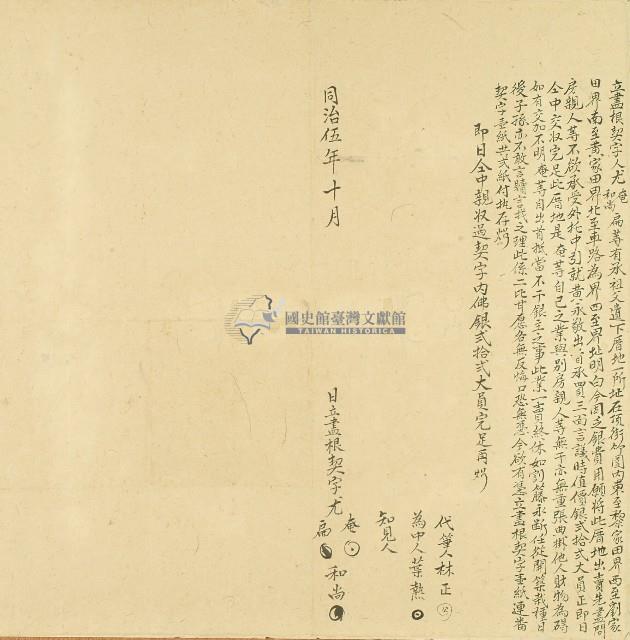 立盡根契字人尤奄和尚扁等有承祖父遺下厝地一所址在頂街竹圍內東至黎家田界西至劉家
田界南至黃家田界北至車路為界四至界址明白今因乏銀費用願將此厝地出賣先盡問
房親人等不欲承受外托中引就黃永敬出首承買三面言議時值價銀弍拾弍大員正即日
仝中交收完足此厝地是奄等自己之業與別房親人等無干亦無重張典掛他人財物為碍
如有交加不明奄等自出首抵當不干銀主之事此業一賣終休如割籐永斷任從開築栽種日
後子孫亦不敢言贖言找之理此係二比甘愿各無反悔口恐無憑今欲有憑立盡根契字壹紙連當
契字壹紙共弍紙付执存炤
即日仝中親收過契字內佛銀弍拾弍大員完足再炤
代筆人林正
為中人葉熱
知見人
同治伍年十月 日立盡根契字尤奄扁和尚
國史館臺灣文獻館
TAIWAN HISTORICA